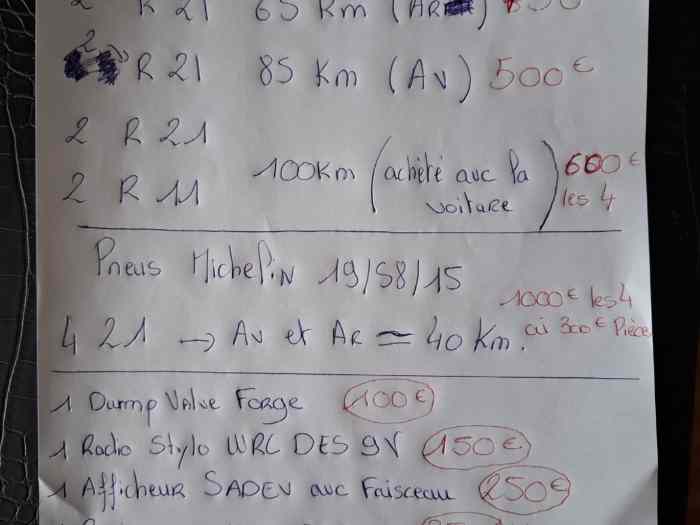 2 R 21 65 Km (AR)
2 R 21 85 Km (AV) 500€
2 R 21
2 R 11
100Km (achété avc la voiture) 600€ les 4
Pneus Michelin 19/58/15
4 21 → AV et AR ≃ 40 Km. 1000€ les 4
où 300€ Pièce
1 Dump Valve Forge 100€
1 Radio Stylo WRC DES 9V 150€
1 Afficheur SADEV avc Faisceau 250€